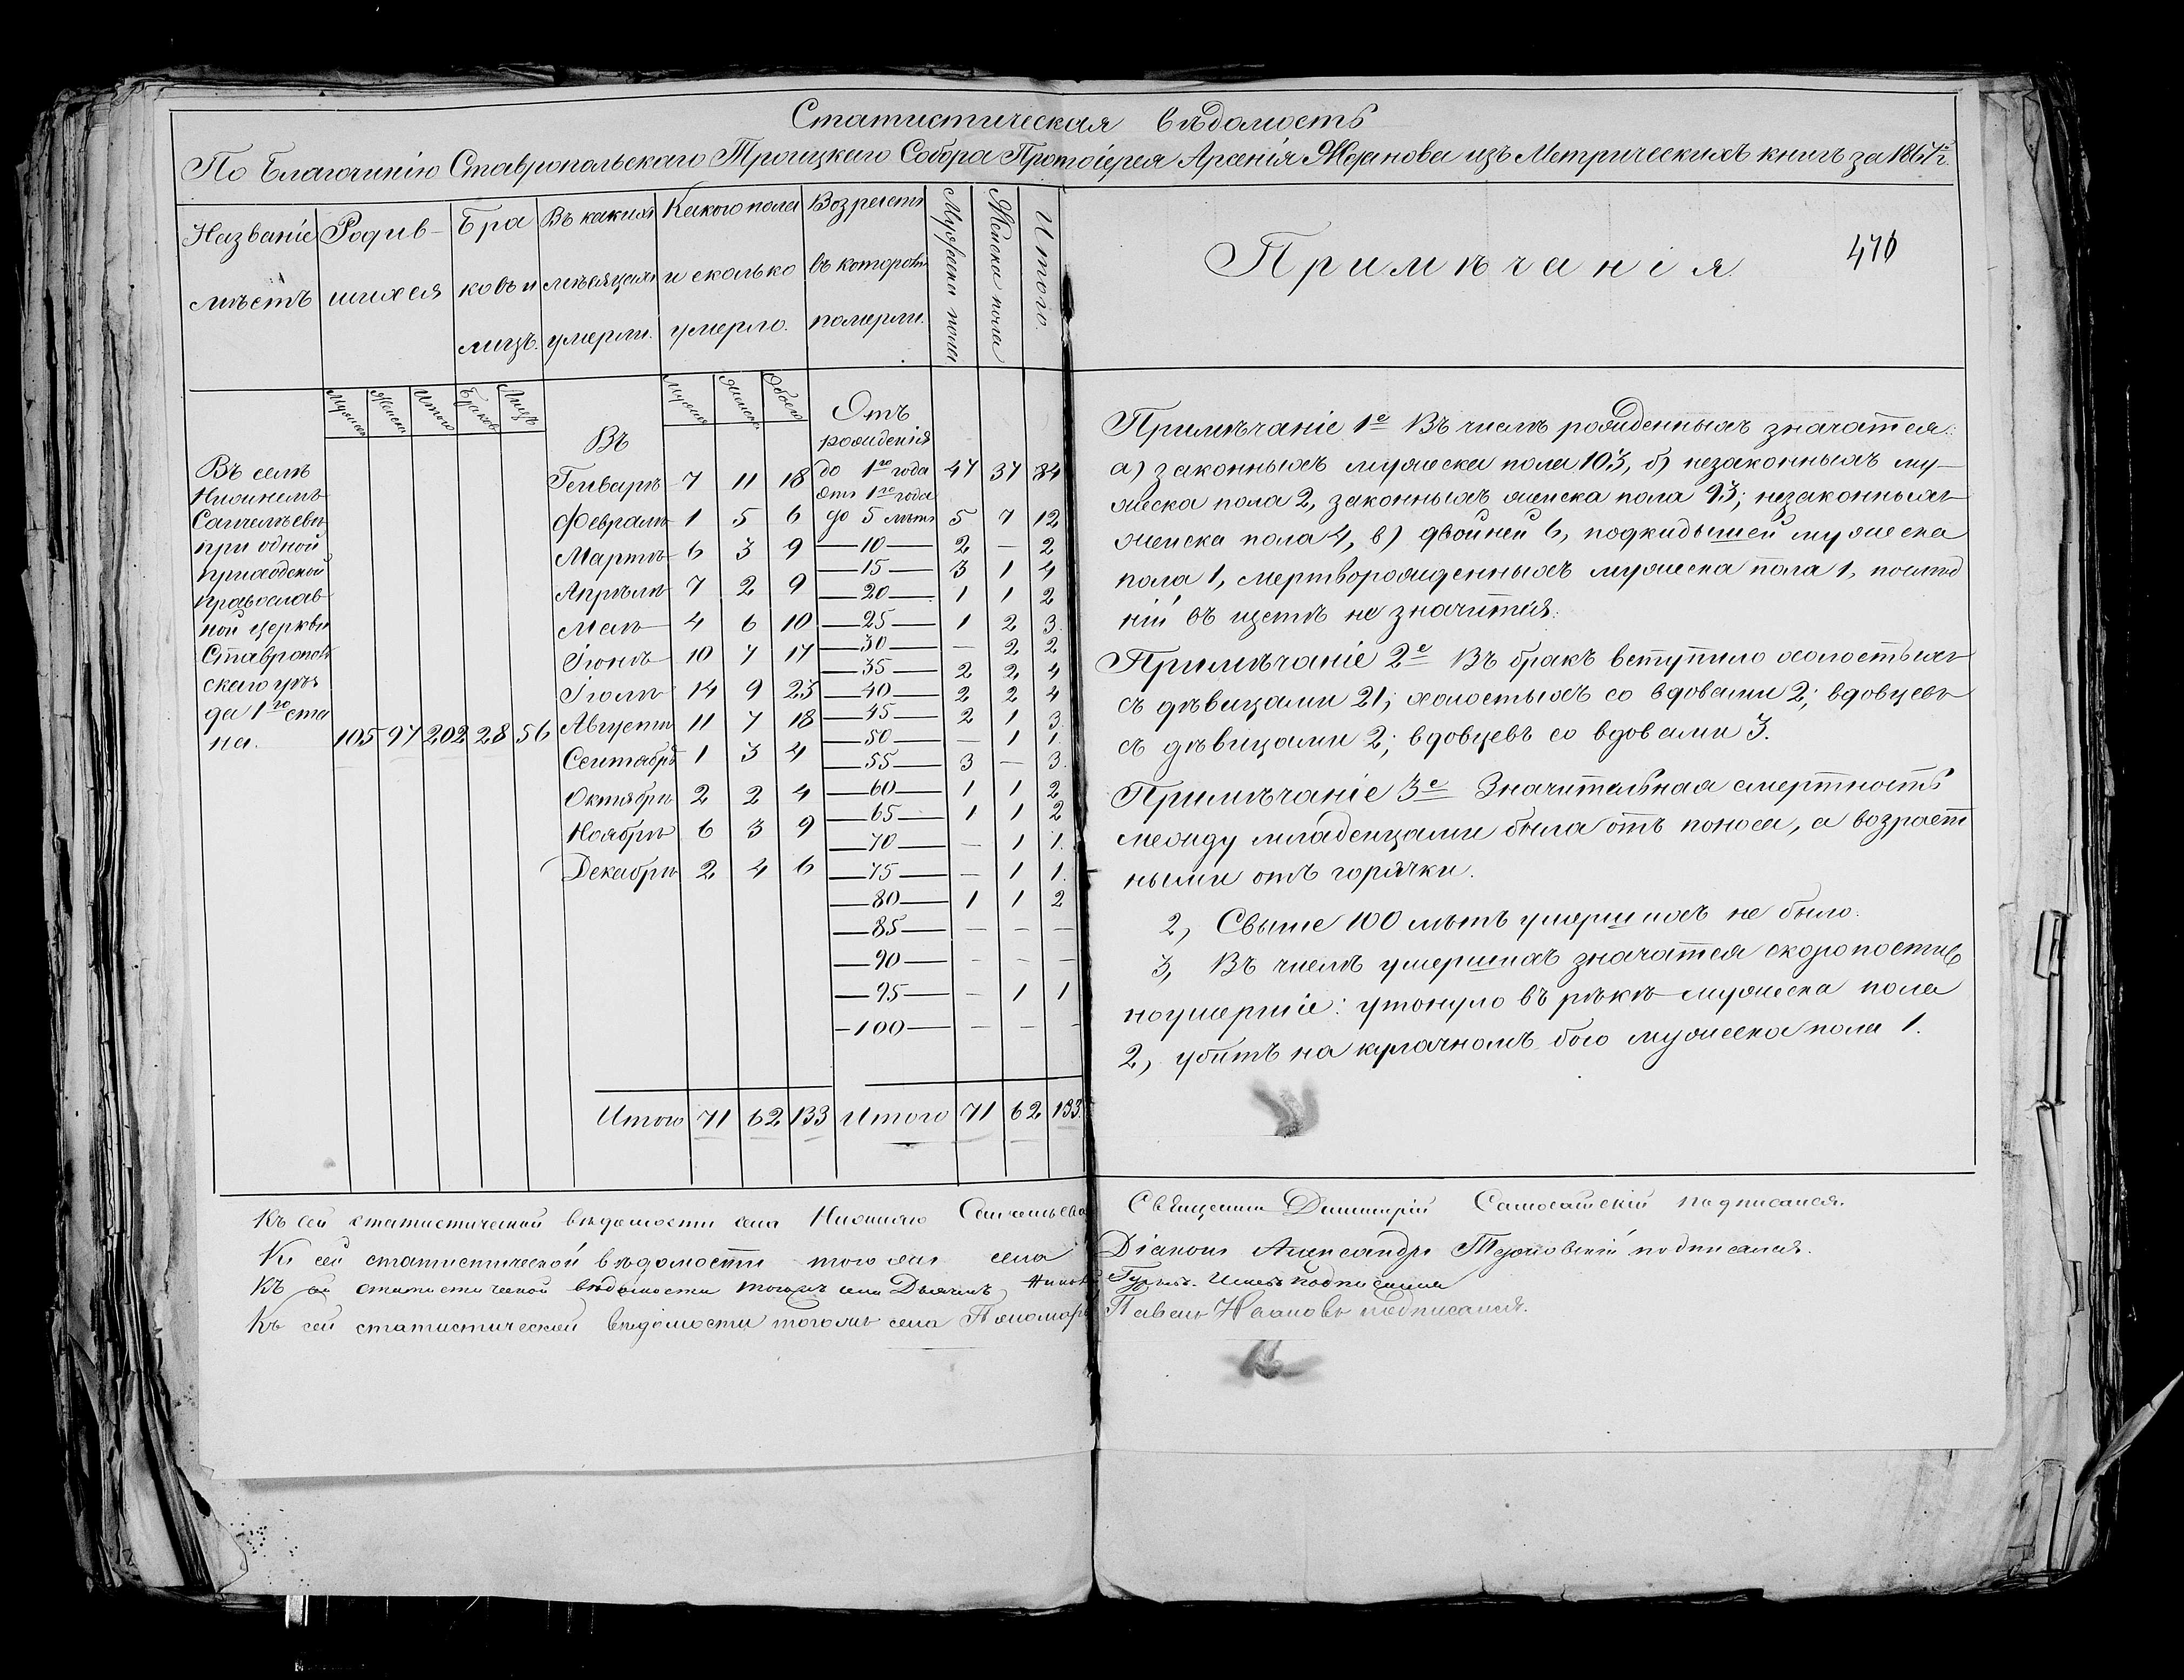 Статистическая вѣдомость
По Благочинію Ставропольскаго Троицкаго Собора Протоіерея Арсенія Жданова изъ Метрическихъ книгъ за 1867 г.
Названіе мѣстъ
Родившихся
Браковъ и лицъ.
Въ какихъ мѣсяцахъ умерли.
Какого пола и сколько умерло.
Возрастъ въ которомъ померли.
Мужеска пола
Женска пола
Итого.
Примѣчанія.
470
Мужеска Женска Итого Браковъ Лицъ
Мужеска Женска Обоего
Въ селѣ
Нижнемъ
Санчелѣевѣ
при одной
приходской
православ-
ной церкви
Ставрополь
скаго уѣз
да 1го ста
на. 105 97 202 28 56
Въ
Генварѣ 7 11 18
Февралѣ 1 5 6
Мартѣ 6 3 9
Апрѣлѣ 7 2 9
Маѣ 4 6 10
Іюнѣ 10 7 17
Іюлѣ 14 9 23
Августѣ 11 7 18
Сентябрѣ 1 3 4
Октябрѣ 2 2 4
Ноябрѣ 6 3 9
Декабрѣ 2 4 6
Итого 71 62 133
Отъ
рожденія
до 1го года 47 37 84
Отъ 1го года
до 5 лѣтъ 5 7 12
—10— 2 — 2
—15— 3 1 4
—20— 1 1 2
—25— 1 2 3.
—30— — 2 2
—35— 2 2 4
—40— 2 2 4
—45— 2 1 3.
—50— — 1 1.
—55— 3 — 3.
—60— 1 1 2
—65— 1 1 2
—70— — 1 1.
—75— — 1 1.
—80— 1 1 2
—85— — — —
—90— — — —
—95— — 1 1
—100— — — —
Итого 71 62 133.
Примѣчаніе 1е Въ числѣ рожденныхъ значатся:
а) законныхъ мужеска пола 103, б) незаконныхъ му-
жеска пола 2, законныхъ женска пола 93; незаконныхъ
женска пола 4, в) двойней 6, подкидышей мужеска
пола 1, мертворожденныхъ мужеска пола 1, послѣд
ній въ щетѣ не значится.
Примѣчаніе 2е Въ бракъ вступило холостыхъ
съ дѣвицами 21; холостыхъ со вдовами 2; вдовцевъ
съ дѣвицами 2; вдовцевъ со вдовами 3.
Примѣчаніе 3е Значительная смертность
между младенцами была отъ поноса, а возраст
ными отъ горячки.
2, Свыше 100 лѣтъ умершихъ не было.
3, Въ числѣ умершихъ значатся скоропостиж
ноумершіе: утонуло въ рѣкѣ мужеска пола
2, убитъ на кулачномъ бою мужеска пола 1.
Къ сей статистической вѣдомости села Нижняго Санчелѣева Священникъ Димитрій подписался.
Къ сей статистической вѣдомости того же села Діаконъ Александръ подписался.
Къ сей статистической вѣдомости тогожъ села Дьячекъ подписался
Къ сей статистической вѣдомости тогожъ села Пономарь Павелъ Ивановъ подписался.